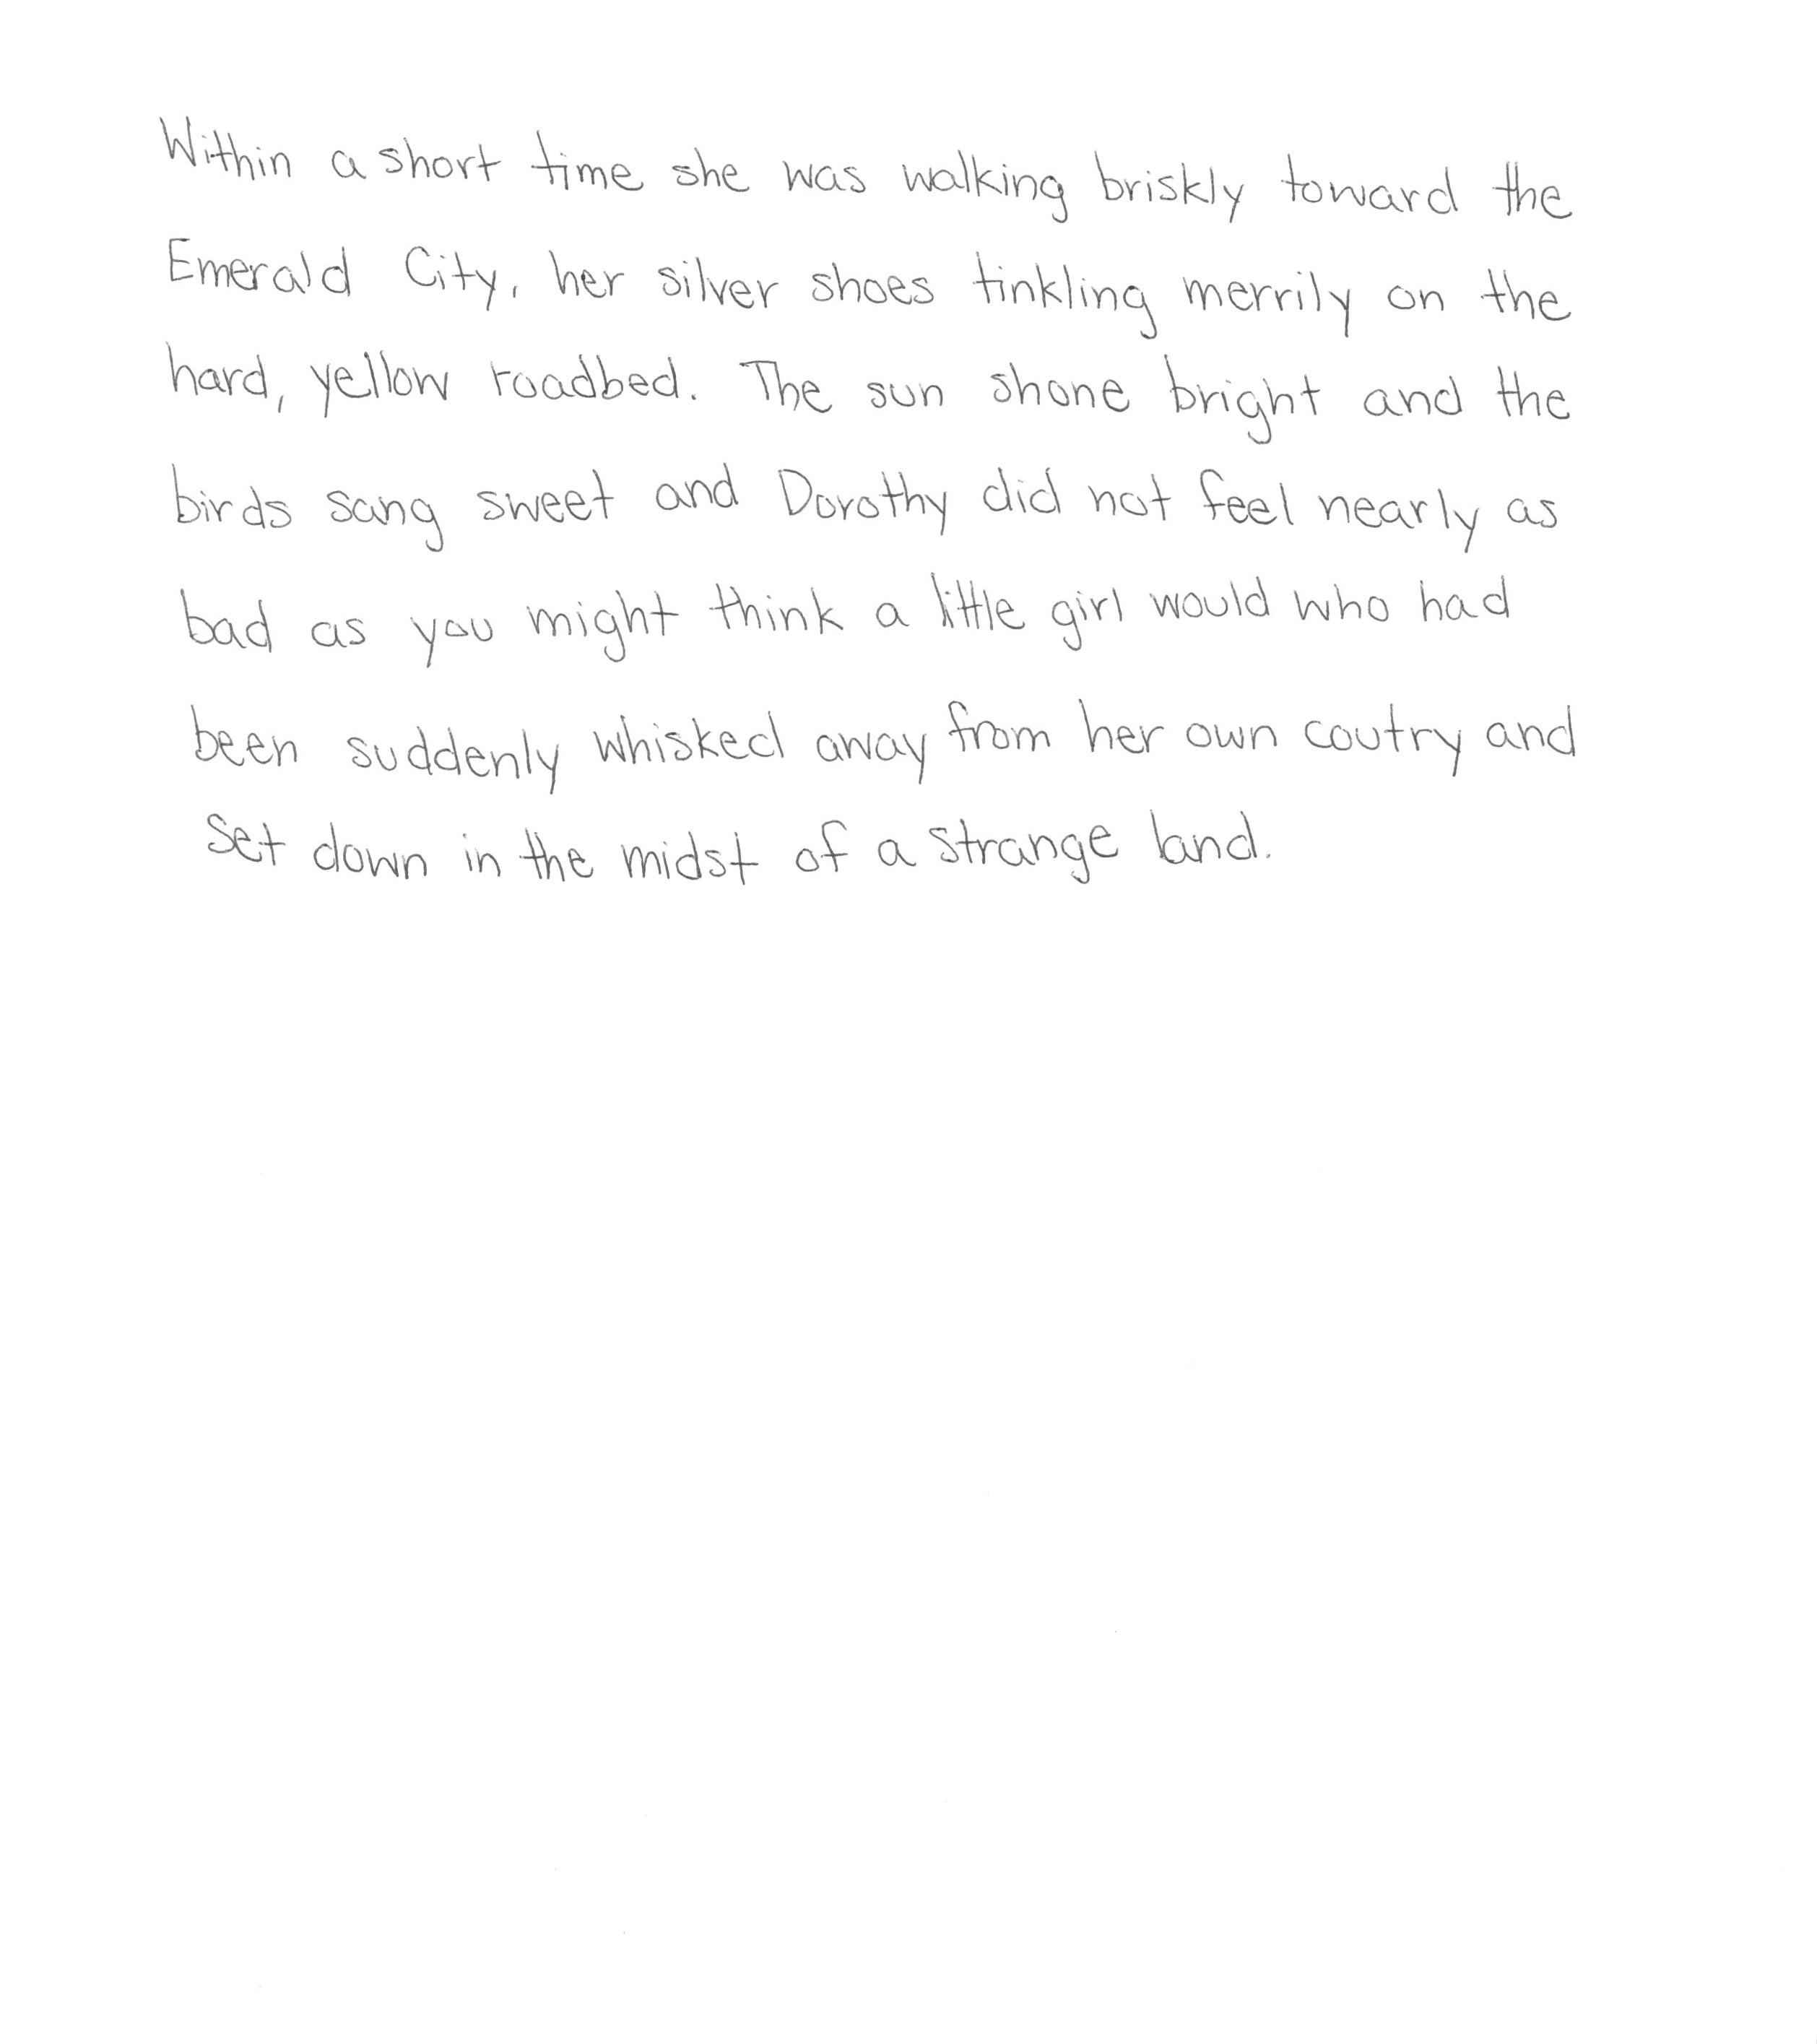 Within a short time she was walking briskly toward the
Emerald City, her silver shoes tinkling merrily on the
hard, yellow roadbed. The sun shone bright and the
birds sang sweet and Dorothy did not feel nearly as
bad as you might think a little girl would who had
been suddenly whisked away from her own coutry and
set down in the midst of a strange land.